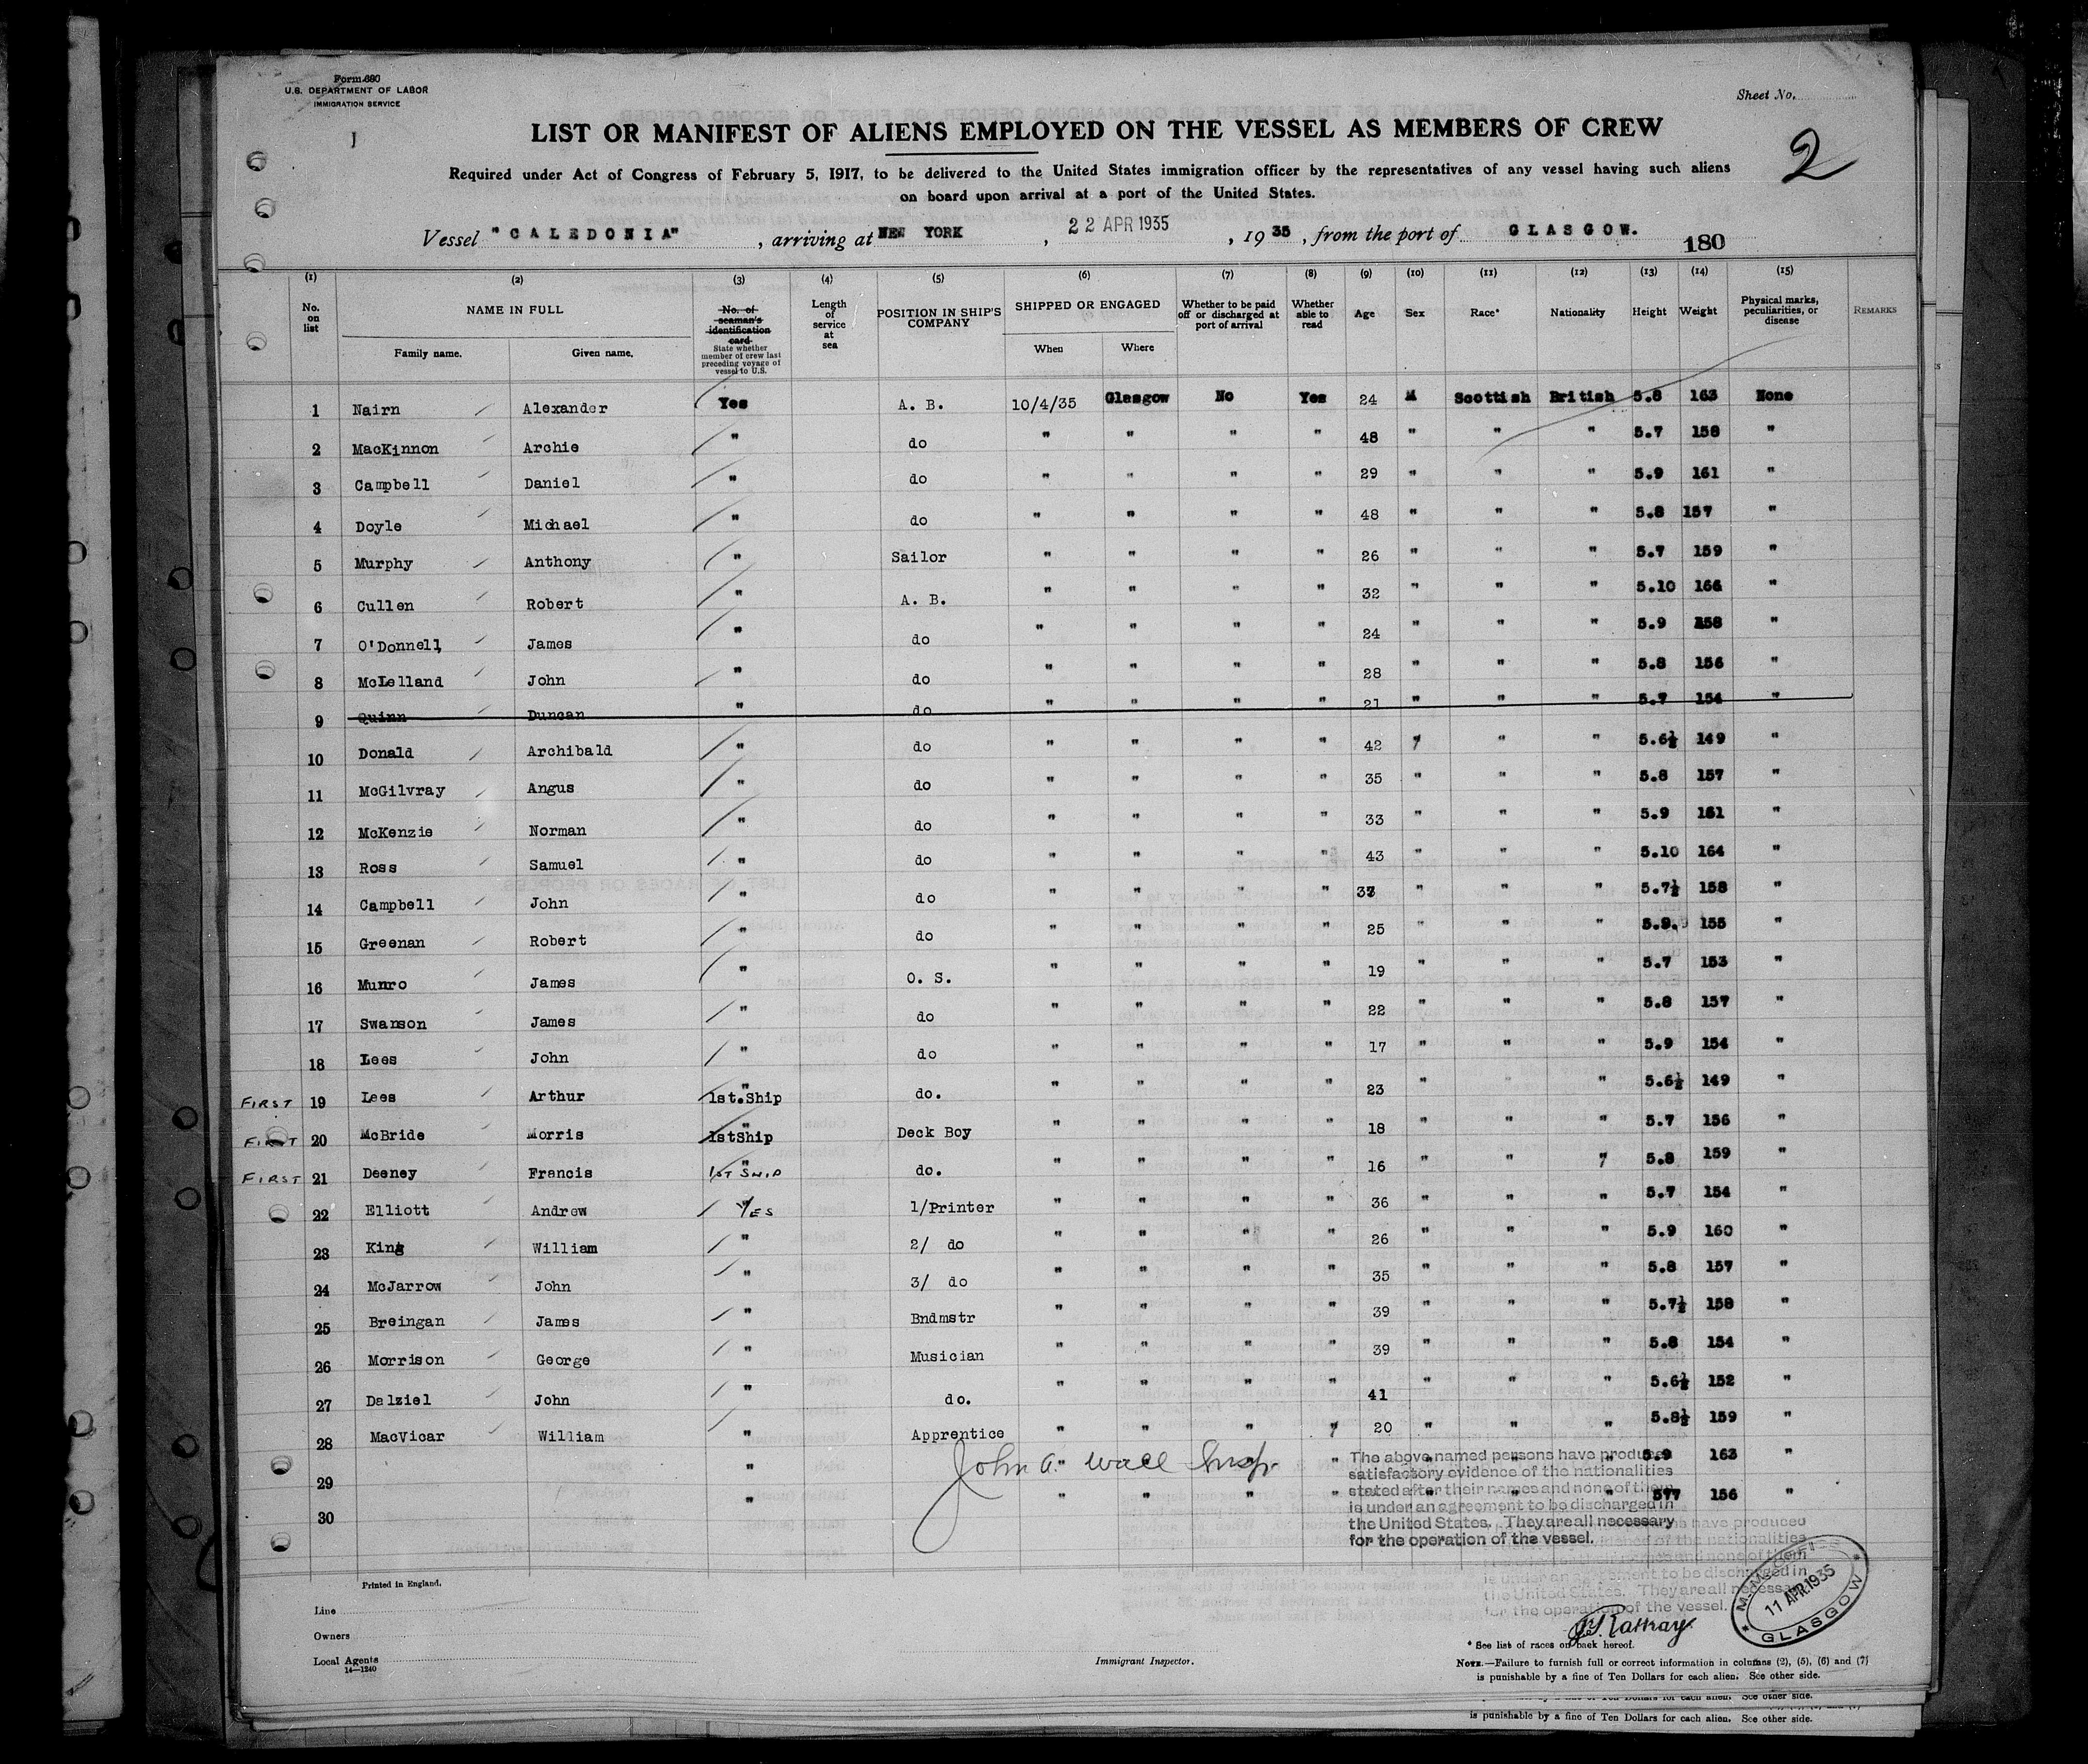 Form 680
U.S. DEPARTMENT OF LABOR
IMMIGRATION SERVICE
Sheet No.
LIST OR MANIFEST OF ALIENS EMPLOYED ON THE VESSEL AS MEMBERS OF CREW
2
Required under Act of Congress of February 5, 1917, to be delivered to the United States immigration officer by the representatives of any vessel having such aliens
on board upon arrival at a port of the United States.
Vessel "CALEDONIA", arriving at NEW YORK, 22 APR 1935, 1935, from the port of GLASGOW.
180
(1) (2) (3) (4) (5) (6) (7) (8) (9) (10) (11) (12) (13) (14) (15)
No. on list NAME IN FULL Family name. Given name. No. of seaman's identification card State whether member of crew last preceding voyage of vessel to U.S. Length of service at sea POSITION IN SHIP'S COMPANY SHIPPED OR ENGAGED When Where Whether to be paid off or discharged at port of arrival Whether able to read Age Sex Race* Nationality Height Weight Physical marks, peculiarities, or disease REMARKS
1 Nairn Alexander Yes A. B. 10/4/35 Glasgow No Yes 24 M Scottish British 5.8 163 None
2 MacKinnon Archie " do " " " " 48 " " " 5.7 158 "
3 Campbell Daniel " do " " " " 29 " " " 5.9 161 "
4 Doyle Michael " do " " " " 48 " " " 5.8 157 "
5 Murphy Anthony " Sailor " " " " 26 " " " 5.7 159 "
6 Cullen Robert " A. B. " " " " 32 " " " 5.10 166 "
7 O'Donnell James " do " " " " 24 " " " 5.9 158 "
8 McLelland John " do " " " " 28 " " " 5.8 156 "
9 Quinn Duncan " do " " " " 21 " " " 5.7 154 "
10 Donald Archibald " do " " " " 42 " " " 5.6½ 149 "
11 McGilvray Angus " do " " " " 35 " " " 5.8 157 "
12 McKenzie Norman " do " " " " 33 " " " 5.9 161 "
13 Ross Samuel " do " " " " 43 " " " 5.10 164 "
14 Campbell John " do " " " " " " " 5.7½ 158 "
15 Greenan Robert " do " " " " 25 " " " 5.9. 155 "
16 Munro James " O. S. " " " " 19 " " " 5.7 153 "
17 Swanson James " do " " " " 22 " " " 5.8 157 "
18 Lees John " do " " " " 17 " " " 5.9 154 "
FIRST 19 Lees Arthur " 1st.Ship do. " " " " 23 " " " 5.6½ 149 "
FIRST 20 McBride Morris " 1stShip Deck Boy " " " " 18 " " " 5.7 156 "
FIRST 21 Deeney Francis " 1ST SHIP do. " " " " 16 " " " 5.8 159 "
22 Elliott Andrew " YES 1/Printer " " " " 36 " " " 5.7 154 "
23 King William " 2/ do " " " " 26 " " " 5.9 160 "
24 McJarrow John " 3/ do " " " " 35 " " " 5.8 157 "
25 Breingan James " Bndmstr " " " " 39 " " " 5.7½ 158 "
26 Morrison George " Musician " " " " 39 " " " 5.8 154 "
27 Dalziel John " do. " " " " 41 " " " 5.6½ 152 "
28 MacVicar William " Apprentice " " " " 20 " " " 5.8½ 159 "
29 " " " " " " 5.9 163 "
30 " " " " " " " " 577 156 "
John A. Wall Insp.
The above named persons have produced
satisfactory evidence of the nationalities
stated after their names and none of them
is under an agreement to be discharged in
the United States. They are all necessary
for the operation of the vessel.
have produced
evidence of the nationalities
names and none of them
is under an agreement to be discharged in
the United States. They are all necessary
for the operation of the vessel.
M.M. OFFICE
11 APR 1935
GLASGOW
Printed in England.
Line
Owners
Local Agents
14—1240
Immigrant Inspector.
Rattray
* See list of races on back hereof.
NOTE.—Failure to furnish full or correct information in columns (2), (5), (6) and (7)
is punishable by a fine of Ten Dollars for each alien. See other side.
by a fine of Ten Dollars for each alien. See other side.
is punishable by a fine of Ten Dollars for each alien. See other side.